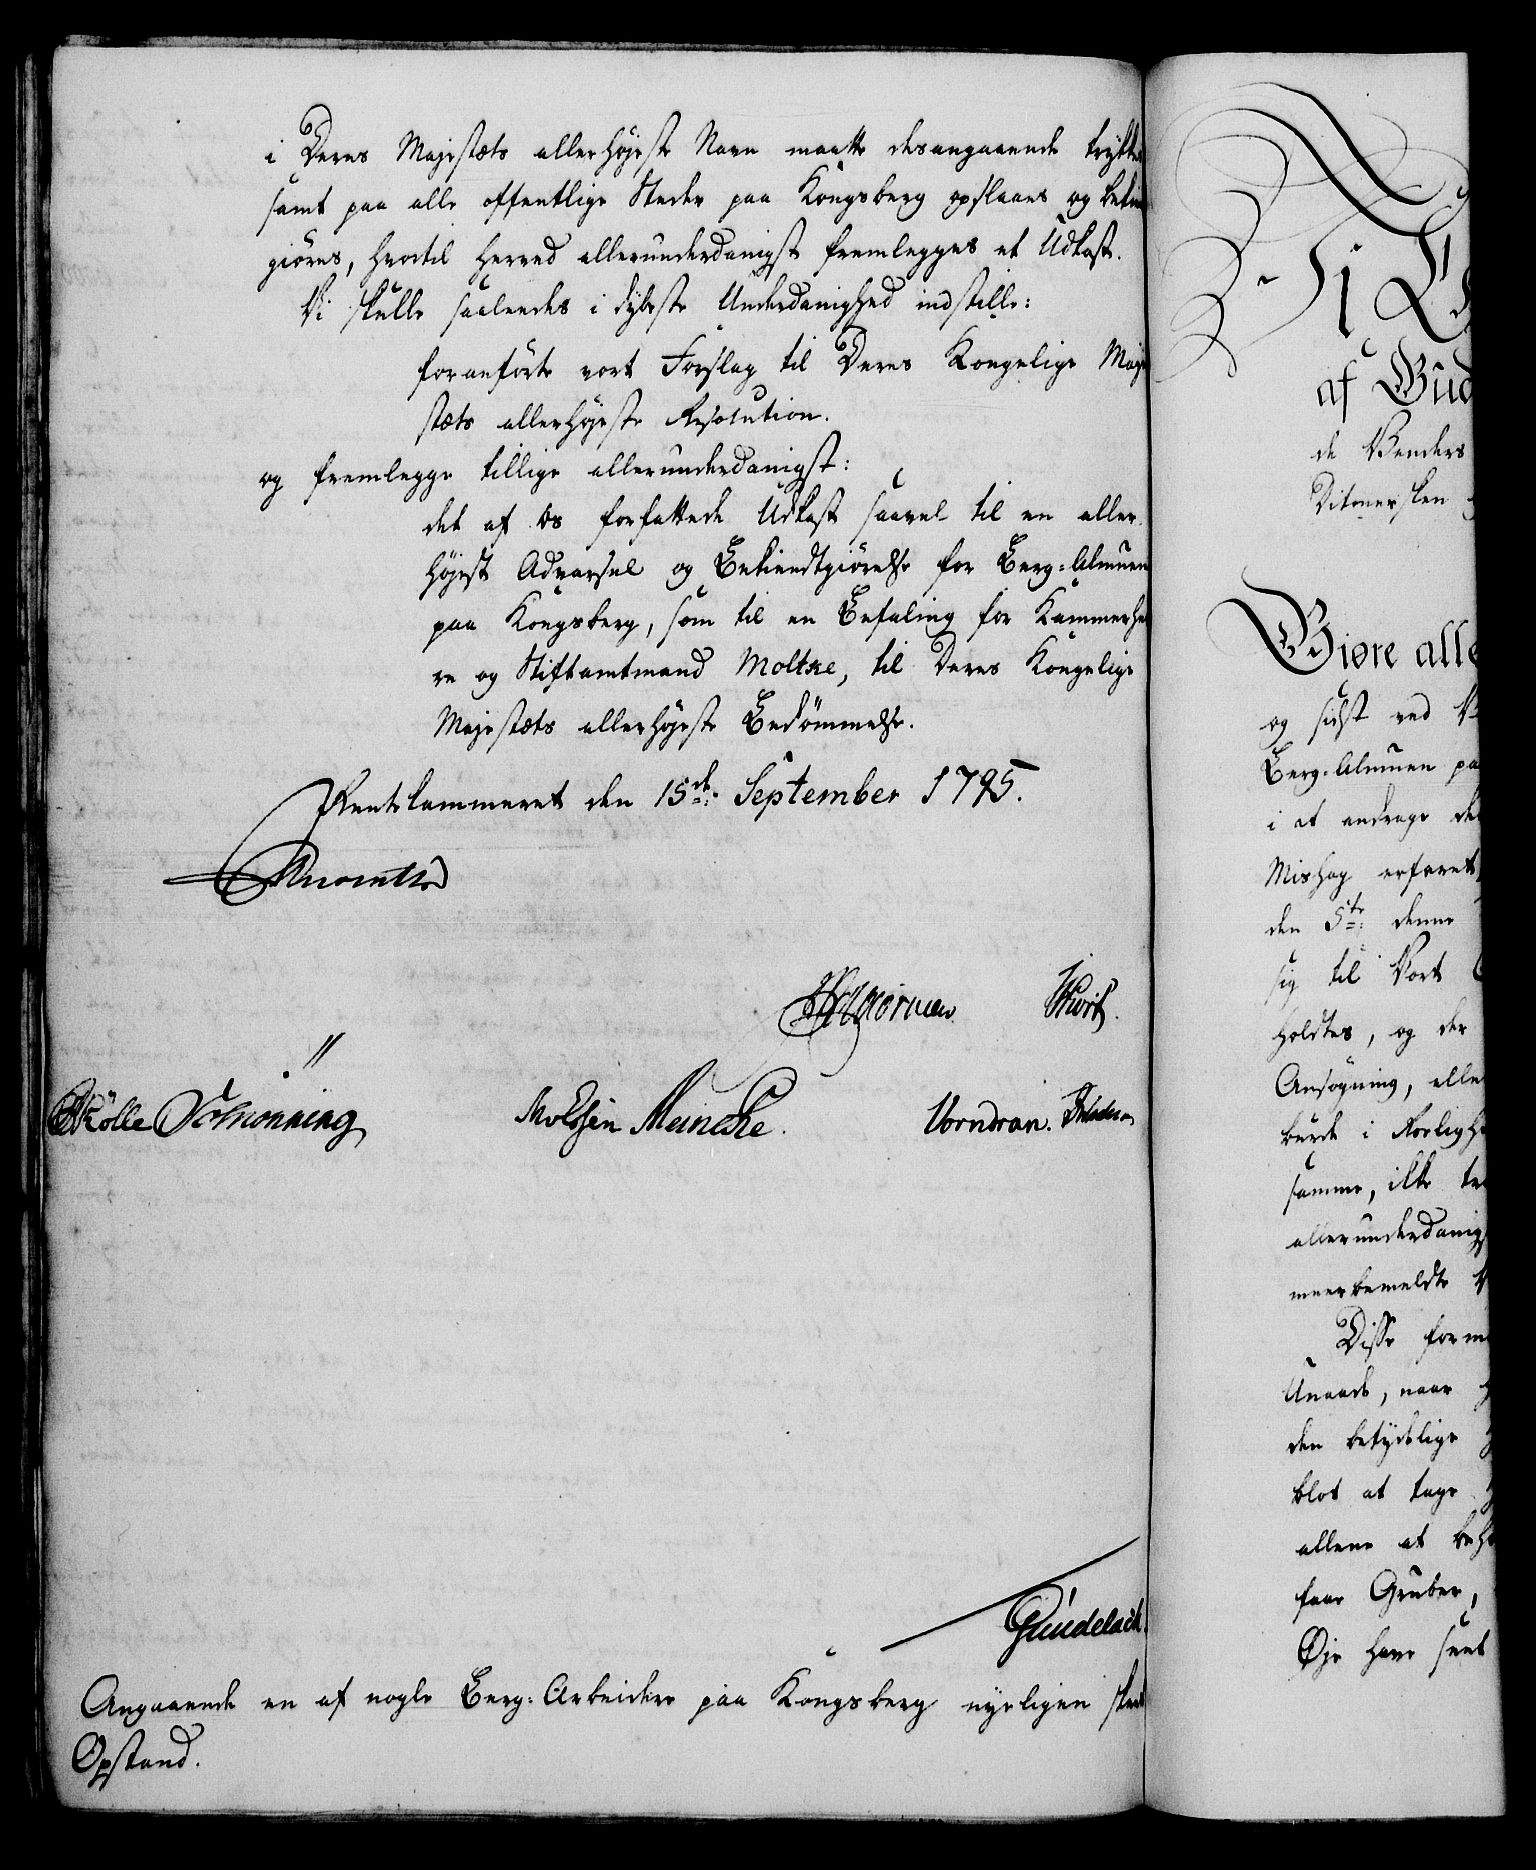 i Deres Majestæts allerhøjeste Navn maatte desangaaende trykkes
samt paa alle offentlige Steder paa Kongsberg opslaaes og bekiendt
giøres, hvortil herved allerunderdanigst fremlegges et Udkast.
Vi skulle saaledes i dybeste Underdanighed indstille:
foranførte vort Forslag til Deres Kongelige Maje
stæts allerhøjeste Resolution.
og fremlegge tillige allerunderdanigst:
det af os forfattede Udkast saavel til en aller
højest Advarsel og Bekiendtgiørelse for Berg-Almuen
paa Kongsberg, som til en Befaling for Kammerher
re og Stiftamtmand Moltke, til Deres Kongelige
Majestæts allerhøjeste Bedømmelse.
Rentekammeret den 15de September 1795.
Wormskiold
Hviid
Kölle Schionning
Molssen Meincke.
Vorndran.
Gundelach.
Angaaende en af nogle Berg-Arbeidere paa Kongsberg nyeligen skeet
Opstand.
Vi C
af Gud
de Venders
Ditmersken
Giøre alle
og sidst ved
Berg-Almuen paa
i at andrage de
Mishag erfaret
den 5te denne
sig til Vort
holdtes, og der
Ansøgning, elle
burde i Rolighe
samme, ikke
allerunderdanigs
meerbemeldte
Disse form
Unaade, naar
den betydelige
blot at tage
allene at beh
faae Gruber,
Øje have seet